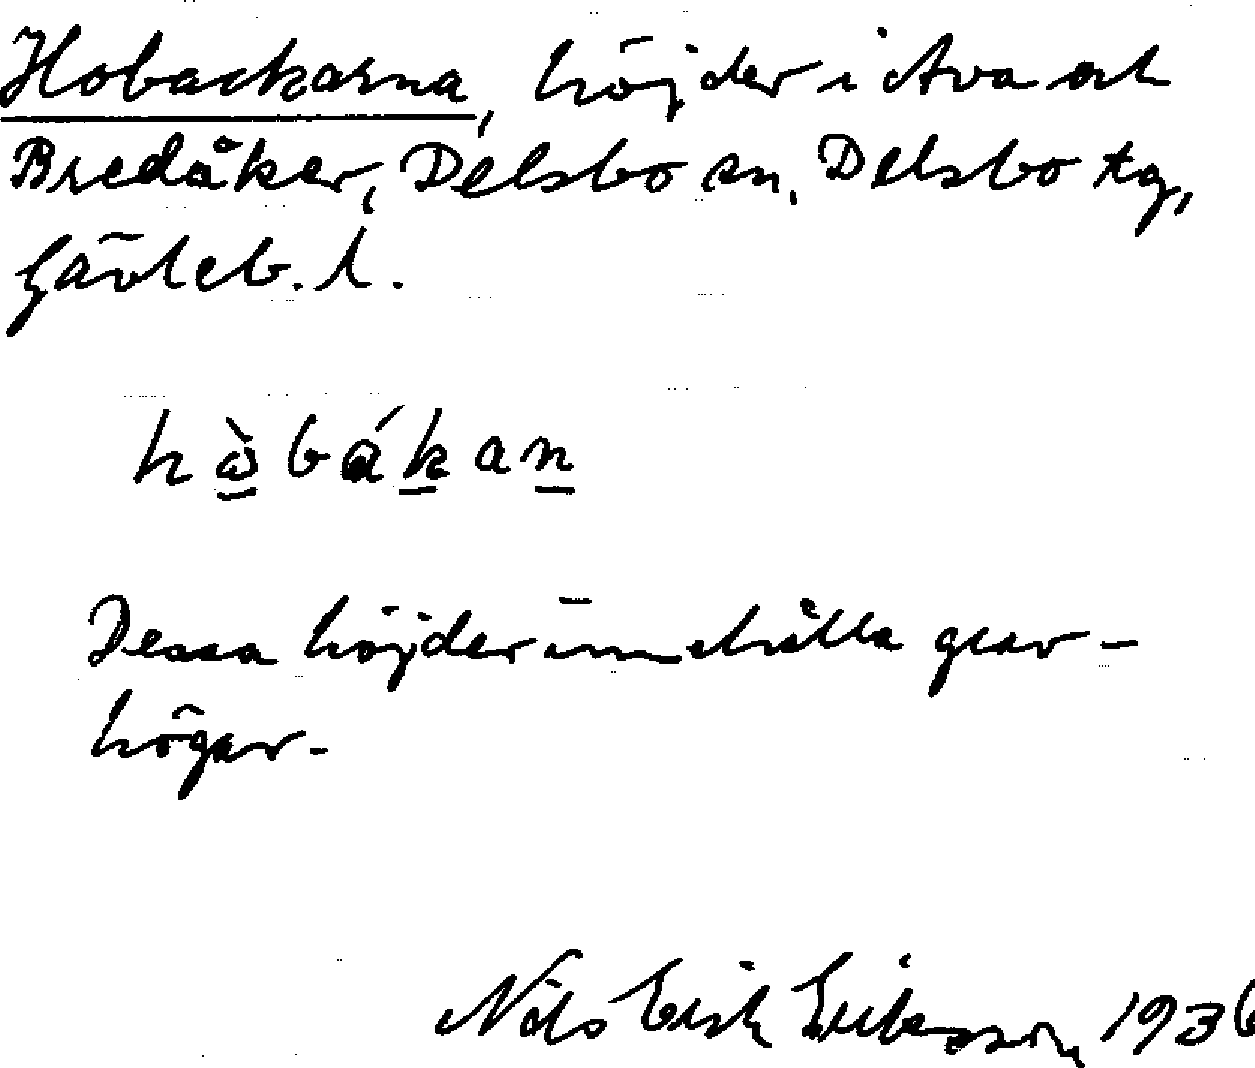 Hobackarna, höjder i Ava och
Bredåker, Delsbo sn, Delsbo tg,
Gävleb. l.
hὼbákan
Dessa höjder innehålla grav-
högar.
Nils Erik Eriksson 1936